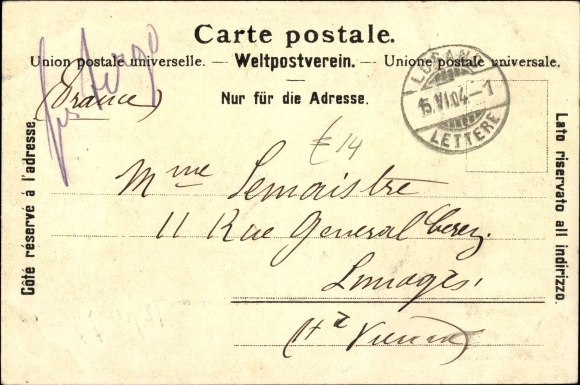 Carte postale.
Union postale universelle. — Weltpostverein. — Unione postale universale.
Nur für die Adresse.
(France)
LUGANO
15.VI.04.-1
LETTERE
Côté réservé à l'adresse.
Lato riservato all indirizzo.
£ 14
Mme Lemaistre
11 Rue General Cerez.
Limoges.
(Hte Vienne)